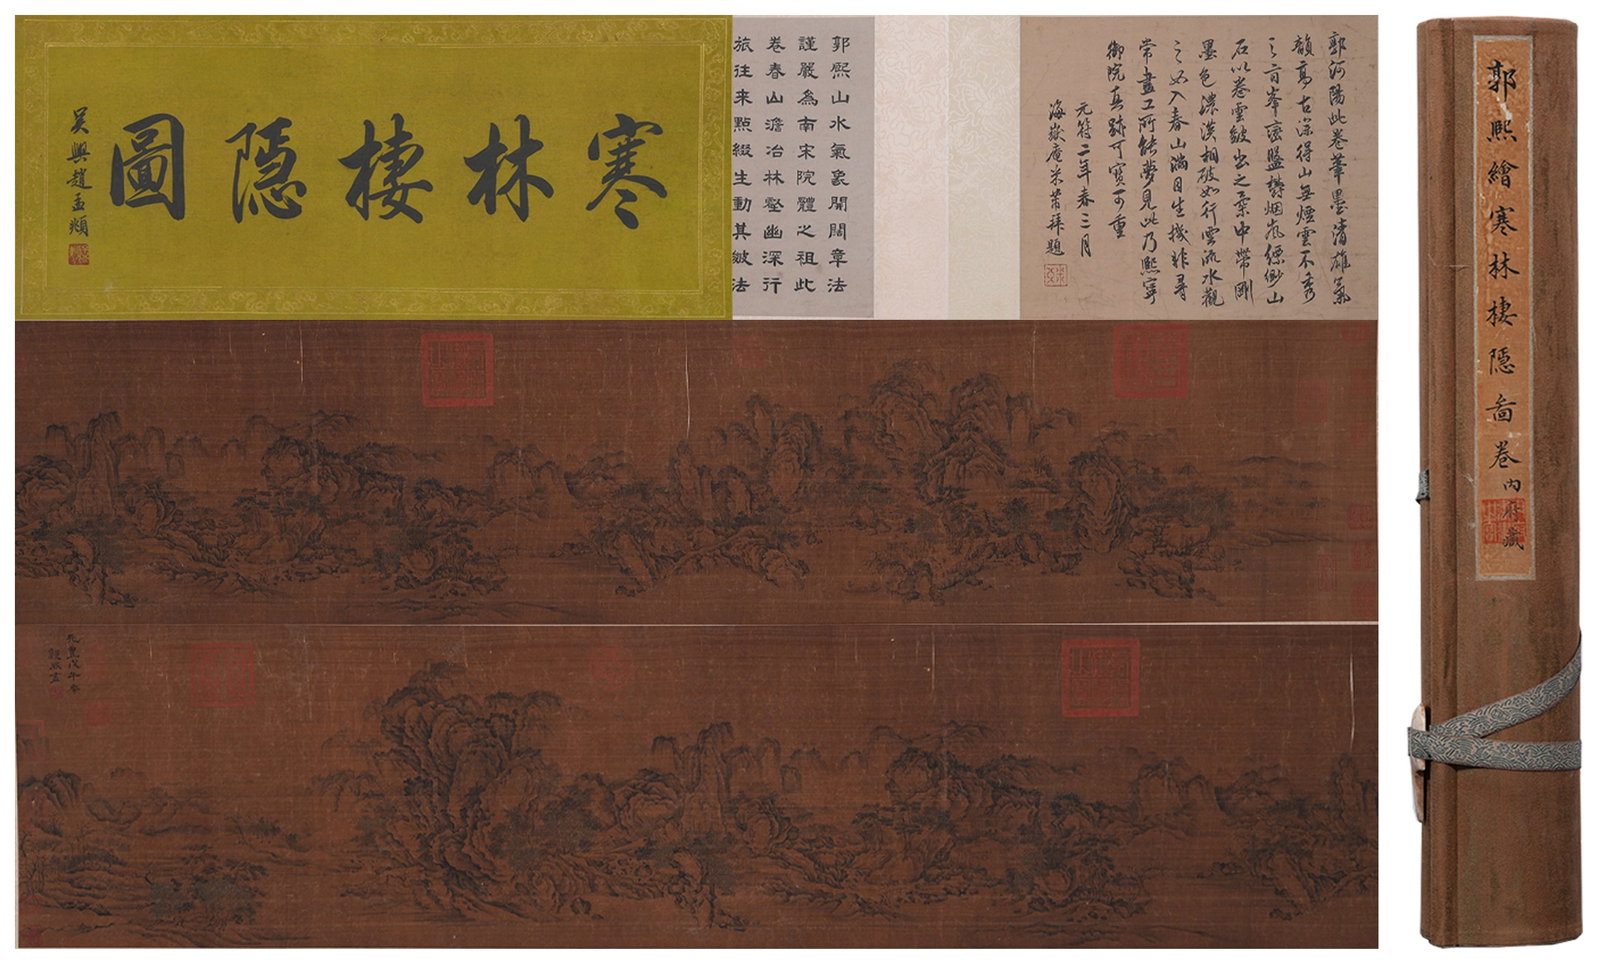 郭河陽此卷筆墨清雄氣
韻高古深得山無煙雲不秀
之旨峯巒盤礴烟嵐縹緲山
石以卷雲皴出之柔中帶剛
墨色濃淡相破如行雲流水觀
之如入春山滿目生機非尋
常畫工所能夢見此乃熙寧
御院真跡可寶可重
元符二年春三月
海嶽庵米芾拜題
郭熙山水氣象開闊章法
謹嚴為南宋院體之祖此
卷春山澹冶林壑幽深行
旅往來點綴生動其皴法
寒林棲隱圖
吳興趙孟頫
元豐戊午春
郭熙畫
郭熙繪寒林棲隱啚卷內府藏